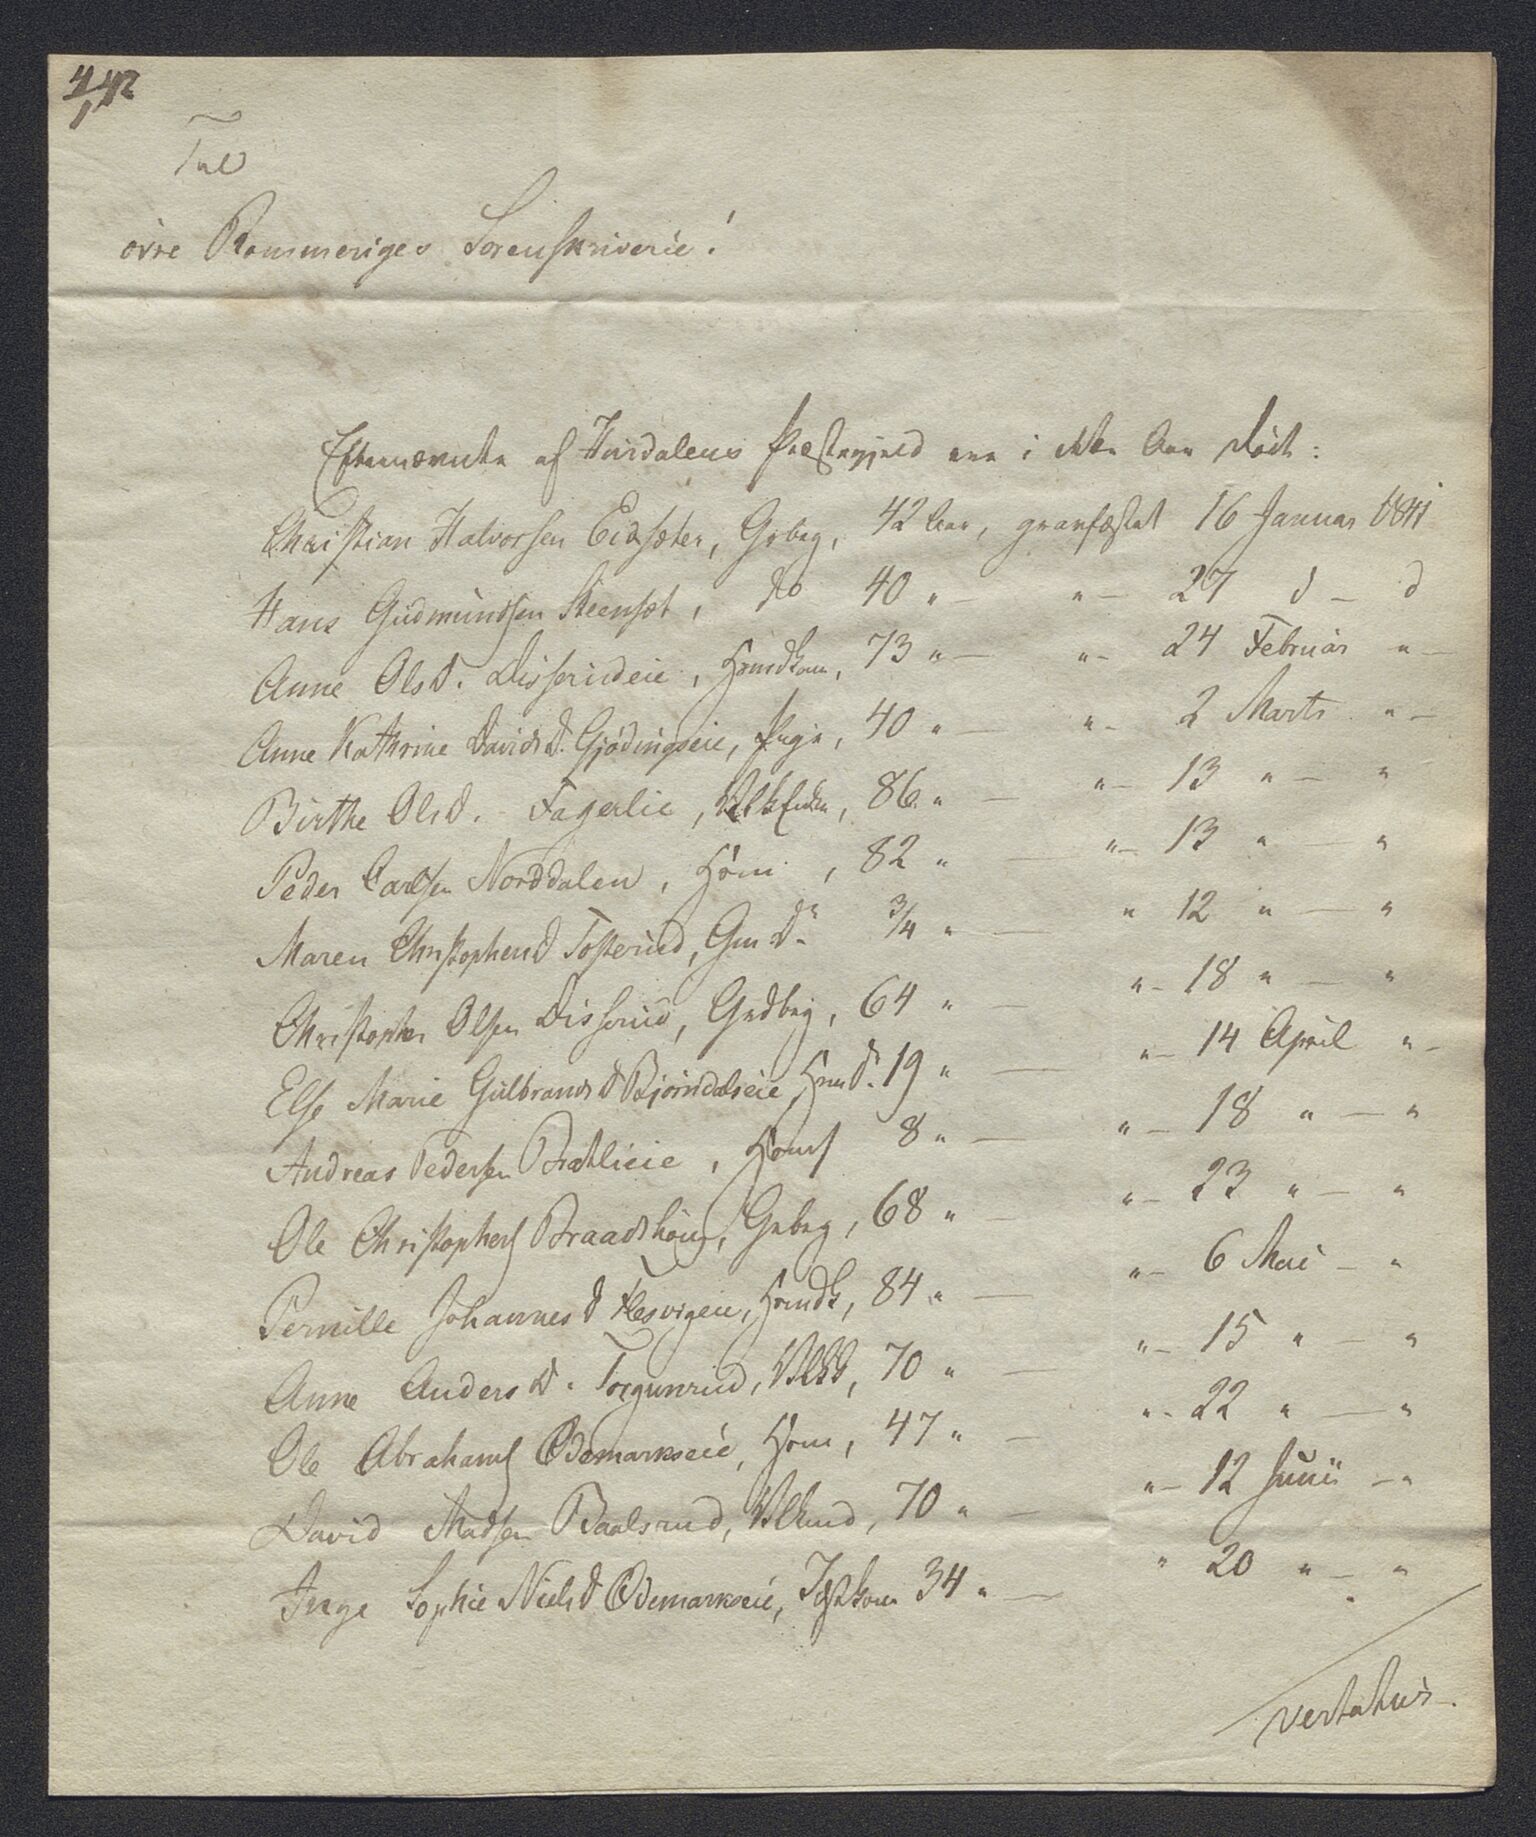 Til
övre Rommeriges Sorenskriverie!
Efternævnte af Hurdalens Præstegjeld ere i dette Aar døde:
Christian Halvorsen Eidsæter, Gbrbrg, 42 Aar, gravfæstet 16 Januar 1841
Hans Gudmundsen Steensæt, do 40 " — " — 27 d — d
Anne Olsd. Disserudeie, Hmdkone, 73 " — " — 24 Februar " —
Anne Kathrine Davidsd. Gjödingseie, Pige, 40 " — " — 2 Marts " —
Birthe Olsd. Fagerlie, Enke, 86 " — " — 13 " — "
Peder Carlsen Norddalen, Hsm, 82 " — " — 13 " — "
Maren Christophersd Tosterud, Gm Dr 3/4 " — " 12 " — "
Christopher Olsen Disserud, Grdbrg, 64 " — " — 18 " — "
Else Marie Gulbrandsd Bjørndalseie Hsm D. 19 " — " — 14 April " —
Andreas Pedersen Brætlieie, Hsms 8 " — " — 18 " — "
Ole Christophers Braadshoug, Grbrg, 68 " — " — 23 " — "
Pernille Johannesd Flesvigeie, Hsmdk, 84 " — " — 6 Mai — "
Anne Andersd. Torgunrud, 70 " — " — 15 " — "
Ole Abrahams Ödemarkseie, Hsm, 47 " — " — 22 " — "
David Madsen Baalsrud, 70 " — " — 12 Junii — "
Inge Sophie Nielsd Ödemarkseie, 34 " — " 20 " — "
vertatur